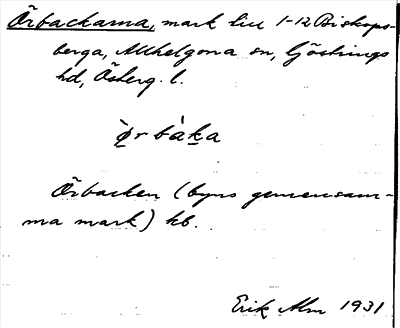 Örbackarna, mark till 1-12 Biskops-
berga, Allhelgona sn, Göstrings
hd, Österg. l.
ö̀r bàka
Örbacken (byns gemensam-
ma mark) kb.
Erik Alm 1931